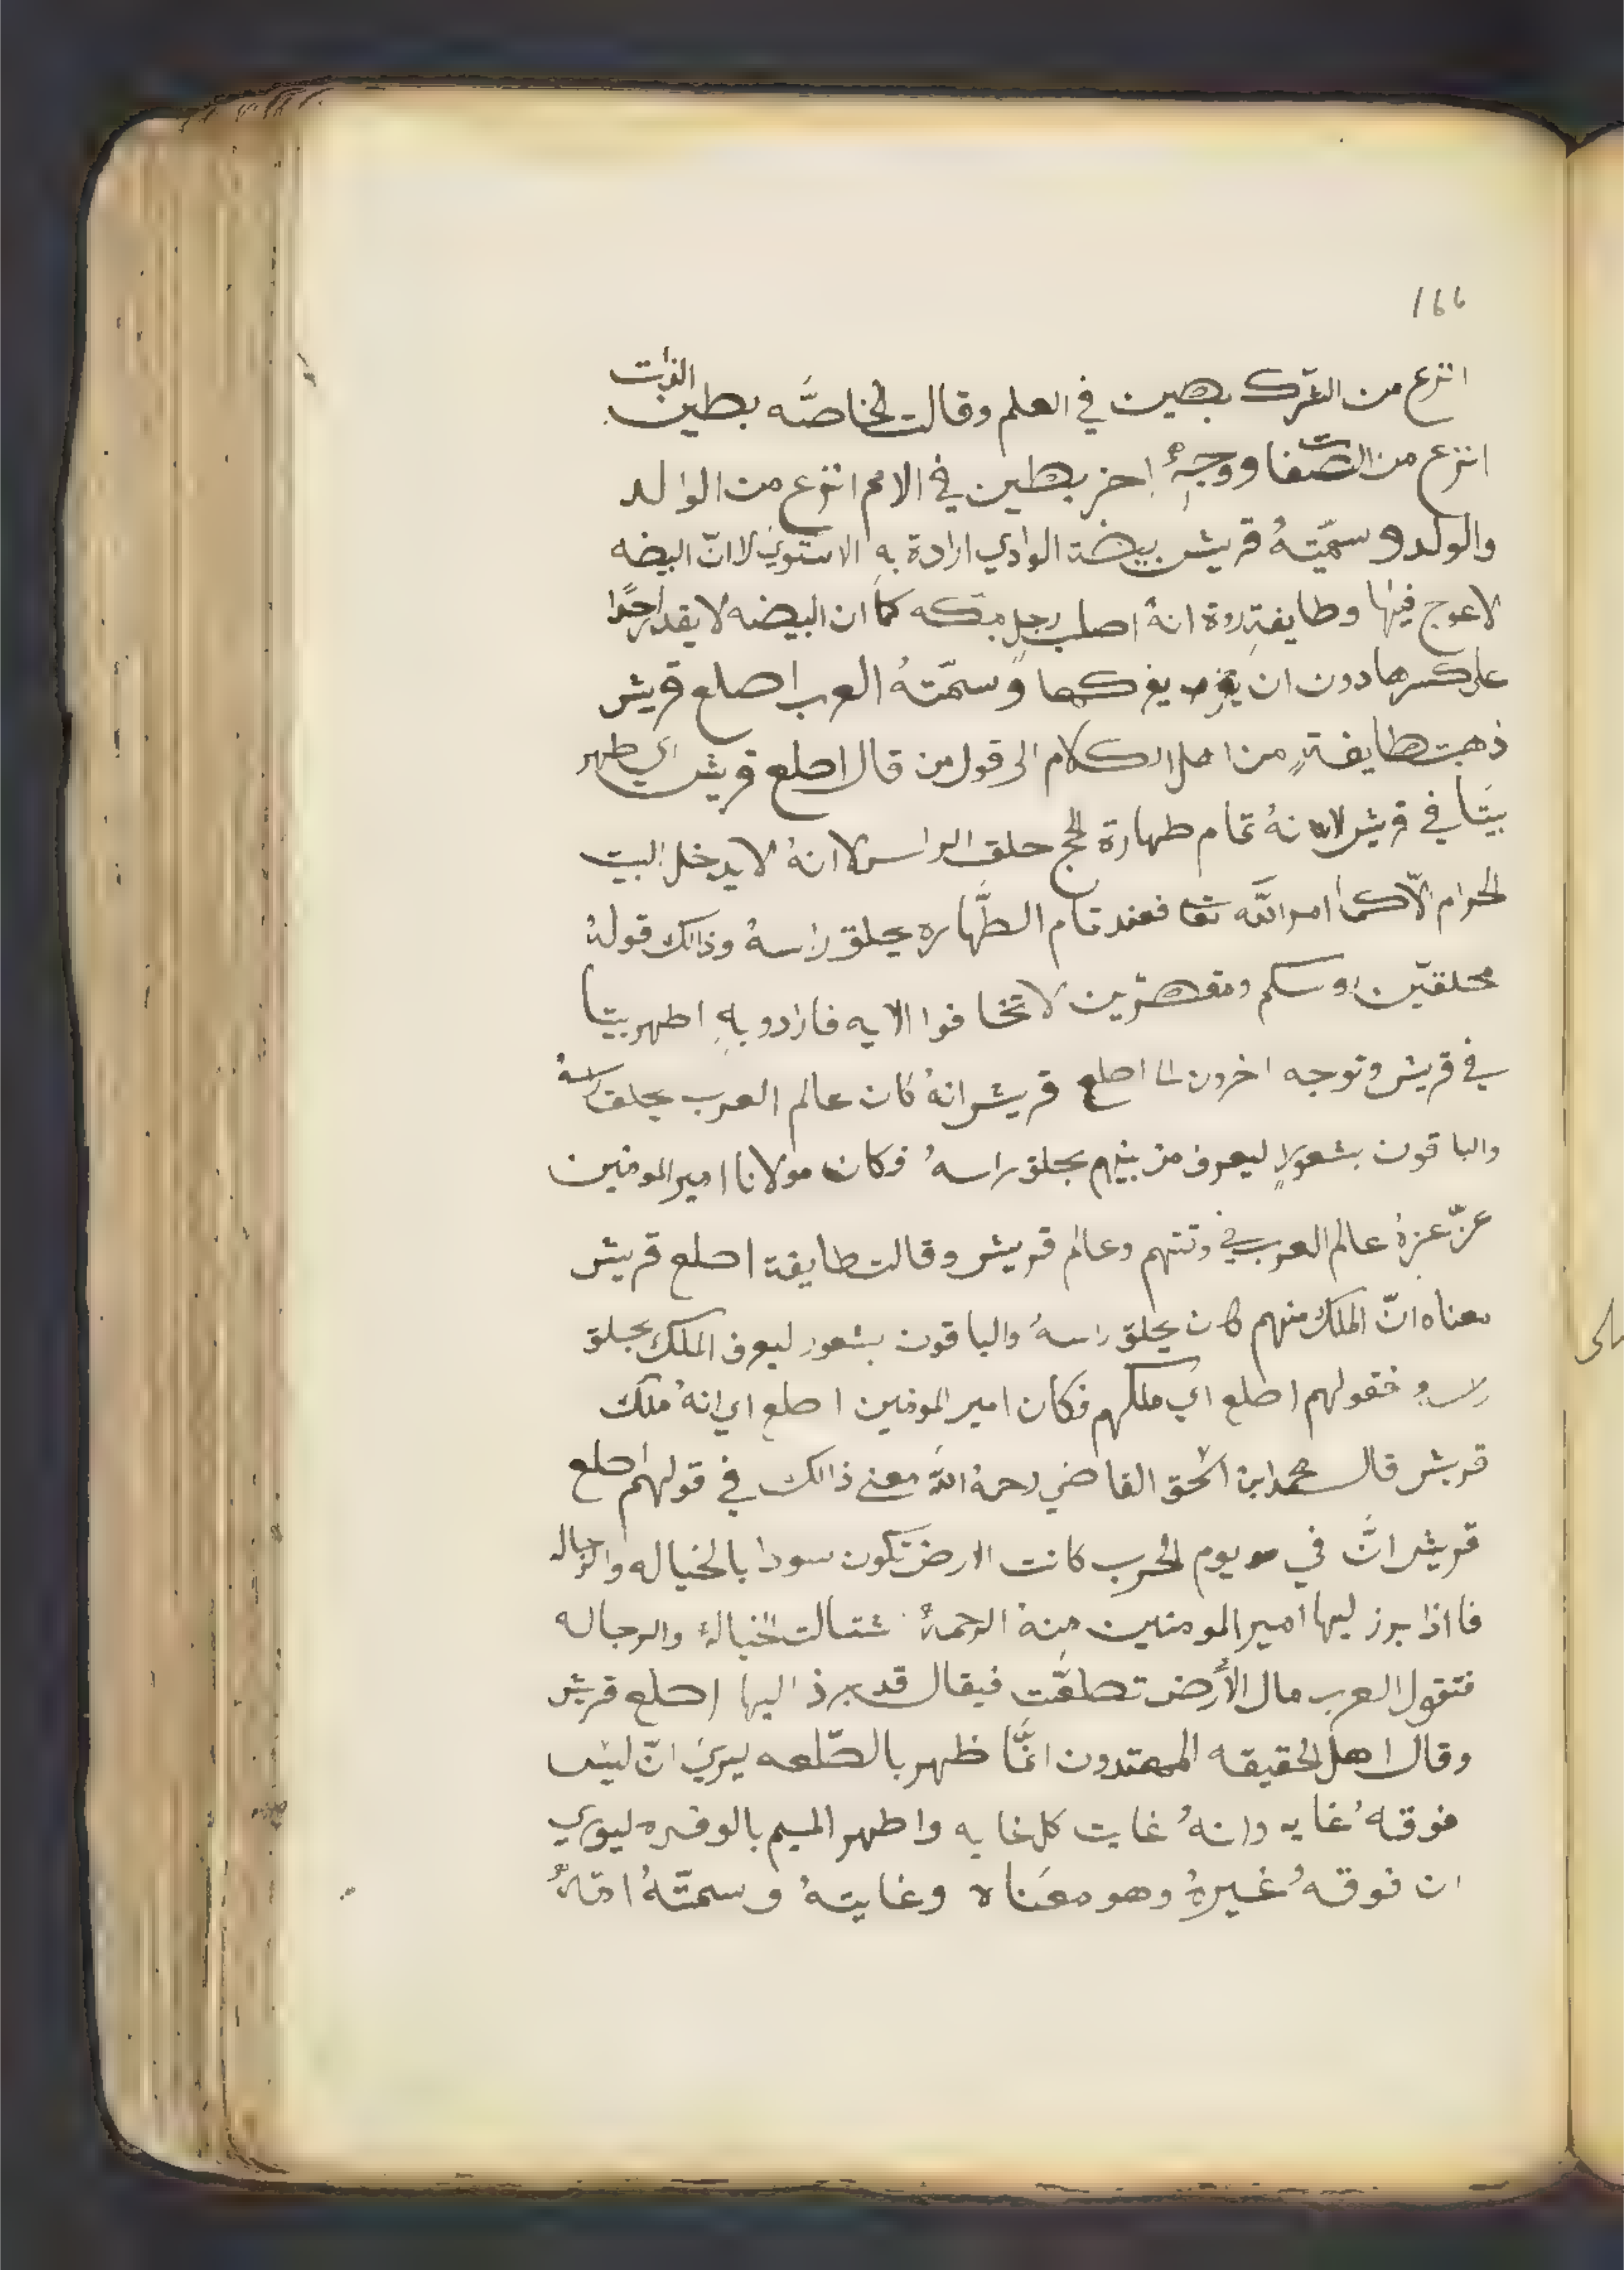 166
انزع من الشرك بطين في العلم وقالت الخاصّه بطين الذات
انزع من الصفات ووجهٌ اخر بطين في الامم انزع من الوالد
والولد وسمّتهُ قريش بيضة الوادي ارادة به الاستوي لان البيضه
لا عوج فيها وطايفةٍ روة انهُ اصلب رجلٍ بمكه كما ان البيضه لا يقدر احدًا
على كسرها دون ان يفركها وسمّتهُ العرب اصلع قريش
ذهبت طايفةٍ من اهل الكلام الى قول من قال اصلع قريش اي اطهر
بيتًا في قريش لانهُ تمام طهارة الحج حلق الراس لانهُ لا يدخل البيت
الحرام الّا كما امر اللّه تعا فعند تمام الطّهاره يحلق راسهُ وذالك قولهُ
محلقيّن روسكم ومقصّرين لا تخافوا الايه فارادو بهِ اطهر بيتا
في قريش وتوجه اخرون لما اصلع قريش انهُ كان عالم العرب يحلق راسهُ
والباقون بشعورٍ ليعرف من بينهم بحلق راسهُ فكان مولانا امير المومنين
عزّ عزهُ عالم العرب في وقتهم وعالم قريش وقالت طايفة اصلع قريش
معناه انّ الملك منهم كان يحلق راسهُ والباقون بشعور ليعرف الملك بحلق
راسه فقولهم اصلع اي ملكهم فكان امير المومنين اصلع اي انهُ ملك
قريش قال محمد ابن اسحق القاضي رحمهُ اللّه معنى ذالك في قولهم اصلع
قريش انّ في يوم الحرب كانت الارض تكون سودا بالخياله والرجاله
فااذا برز ليها امير المومنين منهُ الرحمهُ شتالت الخيالهُ والرجاله
فتقول العرب مال الأرض تصلعّت فيقال قد برز اليها اصلع قريش
وقال اهل الحقيقه المهتدون انمّا ظهر بالصّلعه ليري انّ ليس
فوقهُ غايه وانهُ غايت كل غايه واظهر الميم بالوفره ليوري
ان فوقهُ غيرهُ وهو معناه وغايتهُ وسمتّهُ امّهُ